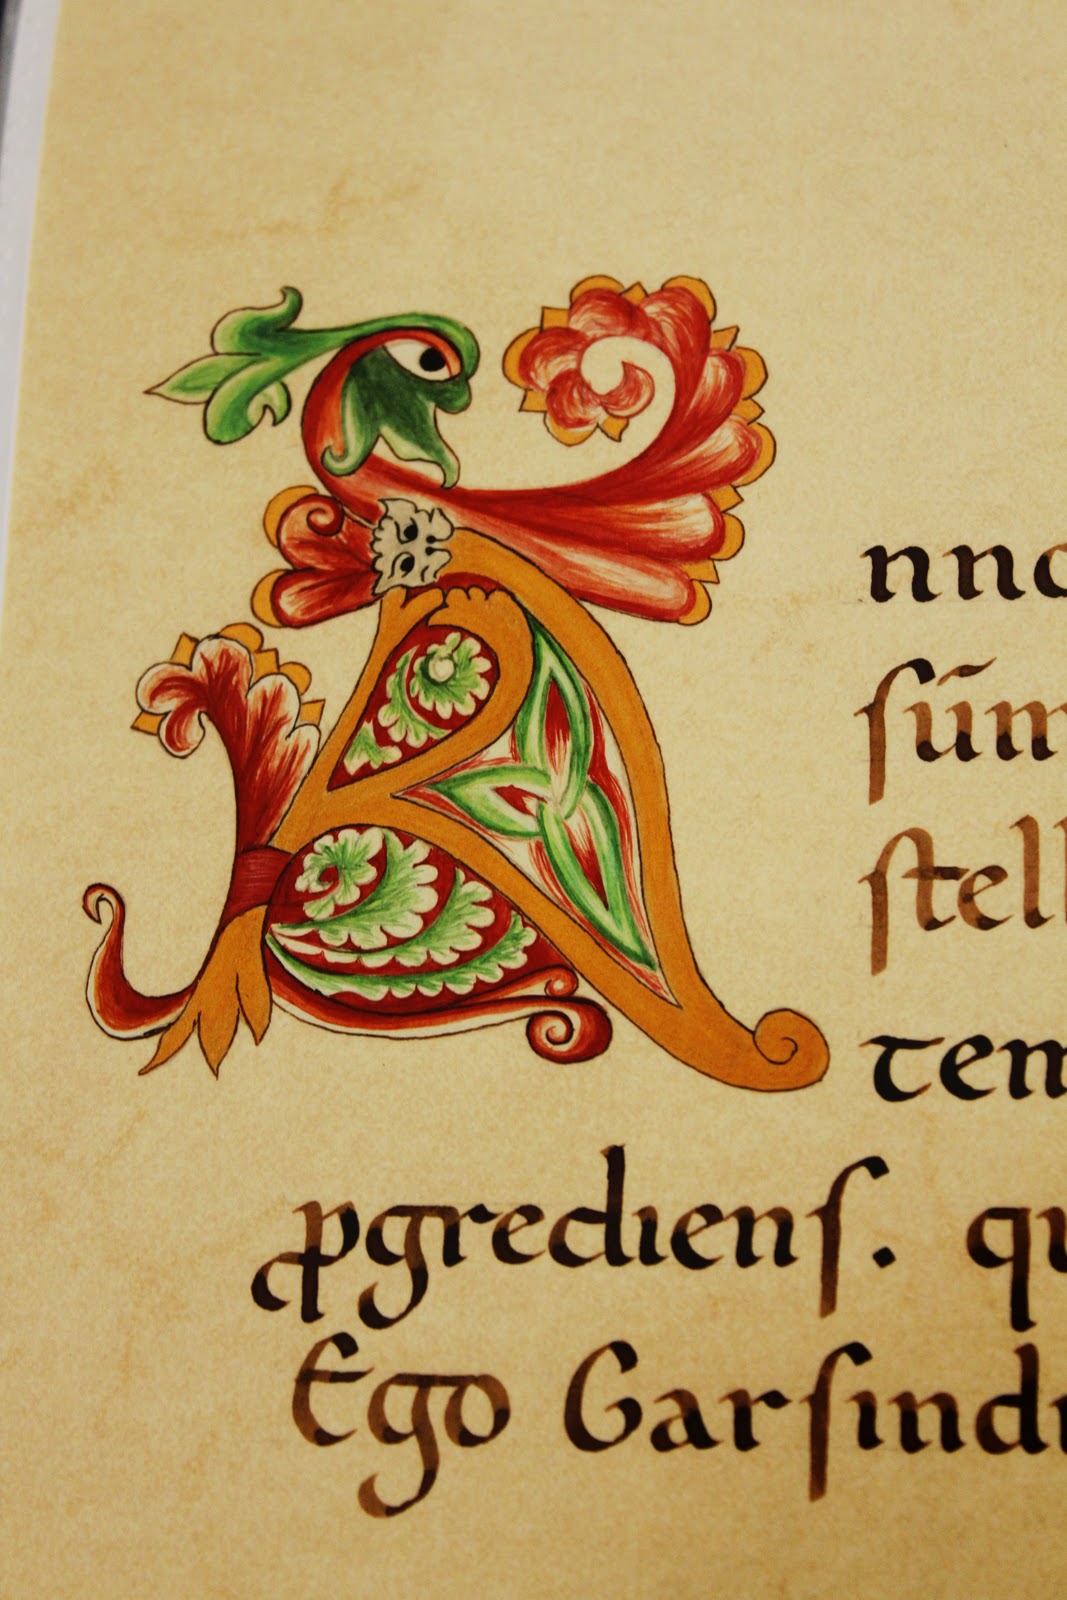 Anno
ſūm
ſtell
tem
ꝓgredienſ. qu
Ego Garſindi